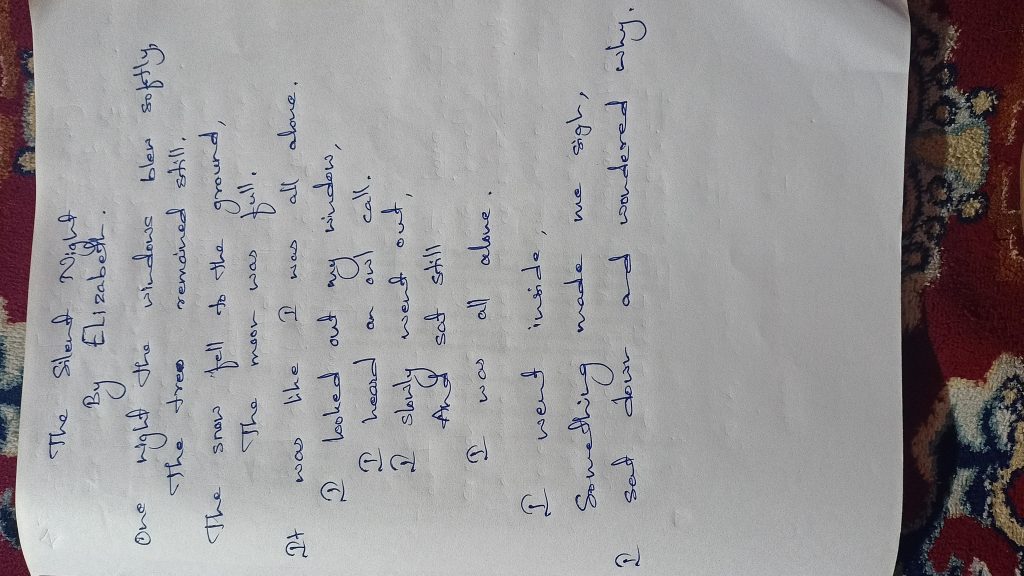 The Silent Night
By Elizabeth.
One night the windows blew softly,
The tree remained still.
The snow fell to the ground,
The moon was full.
It was like I was all alone.
I looked out my window,
I heard an owl call.
I slowly went out,
And sat still
I was all alone.
I went inside,
Something made me sigh,
I sat down and wondered why.